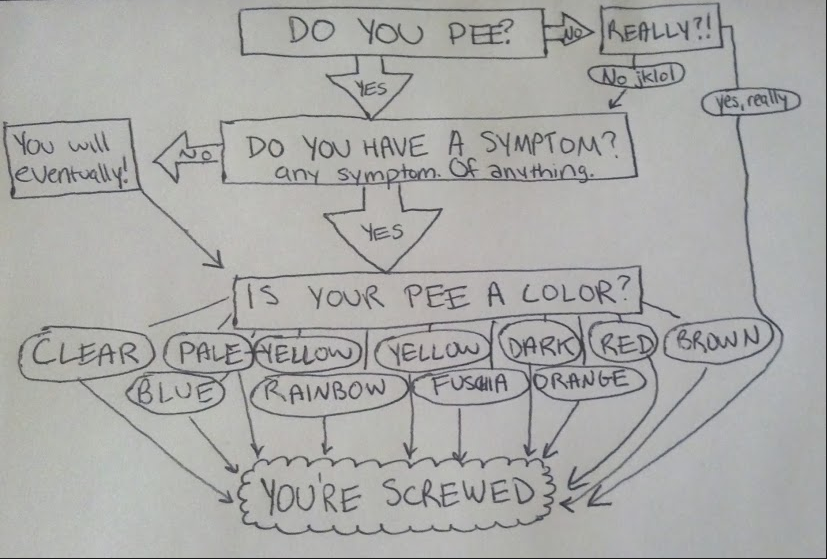 DO YOU PEE?
NO
REALLY?!
No jklol
yes, really
YES
DO YOU HAVE A SYMPTOM?
any symptom. Of anything.
NO
You will
eventually!
YES
IS YOUR PEE A COLOR?
CLEAR
PALE-YELLOW
YELLOW
DARK
RED
BROWN
BLUE
RAINBOW
FUSCHIA
ORANGE
YOU'RE SCREWED